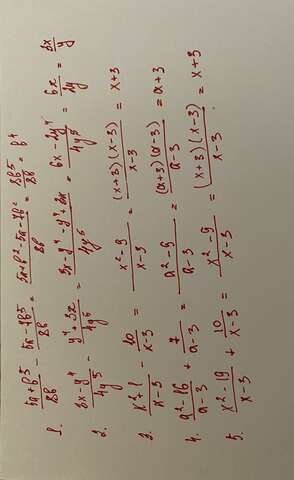 1. (5a+b⁵)/(8b) - (5a-7b⁵)/(8b) = (5a+b⁵-5a-7b⁵)/(8b) = (8b⁵)/(8b) = b⁴
2. (3x-y⁴)/(4y⁵) - (y⁴+3x)/(4y⁵) = (3x-y⁴-y⁴+3x)/(4y⁵) = (6x-2y⁴)/(4y⁵) = (6x)/(2y) = (3x)/y
3. (x²+1)/(x-3) - 10/(x-3) = (x²-9)/(x-3) = ((x+3)(x-3))/(x-3) = x+3
4. (a²-16)/(a-3) + 7/(a-3) = (a²-9)/(a-3) = ((a+3)(a-3))/(a-3) = a+3
5. (x²-19)/(x-3) + 10/(x-3) = (x²-9)/(x-3) = ((x+3)(x-3))/(x-3) = x+3